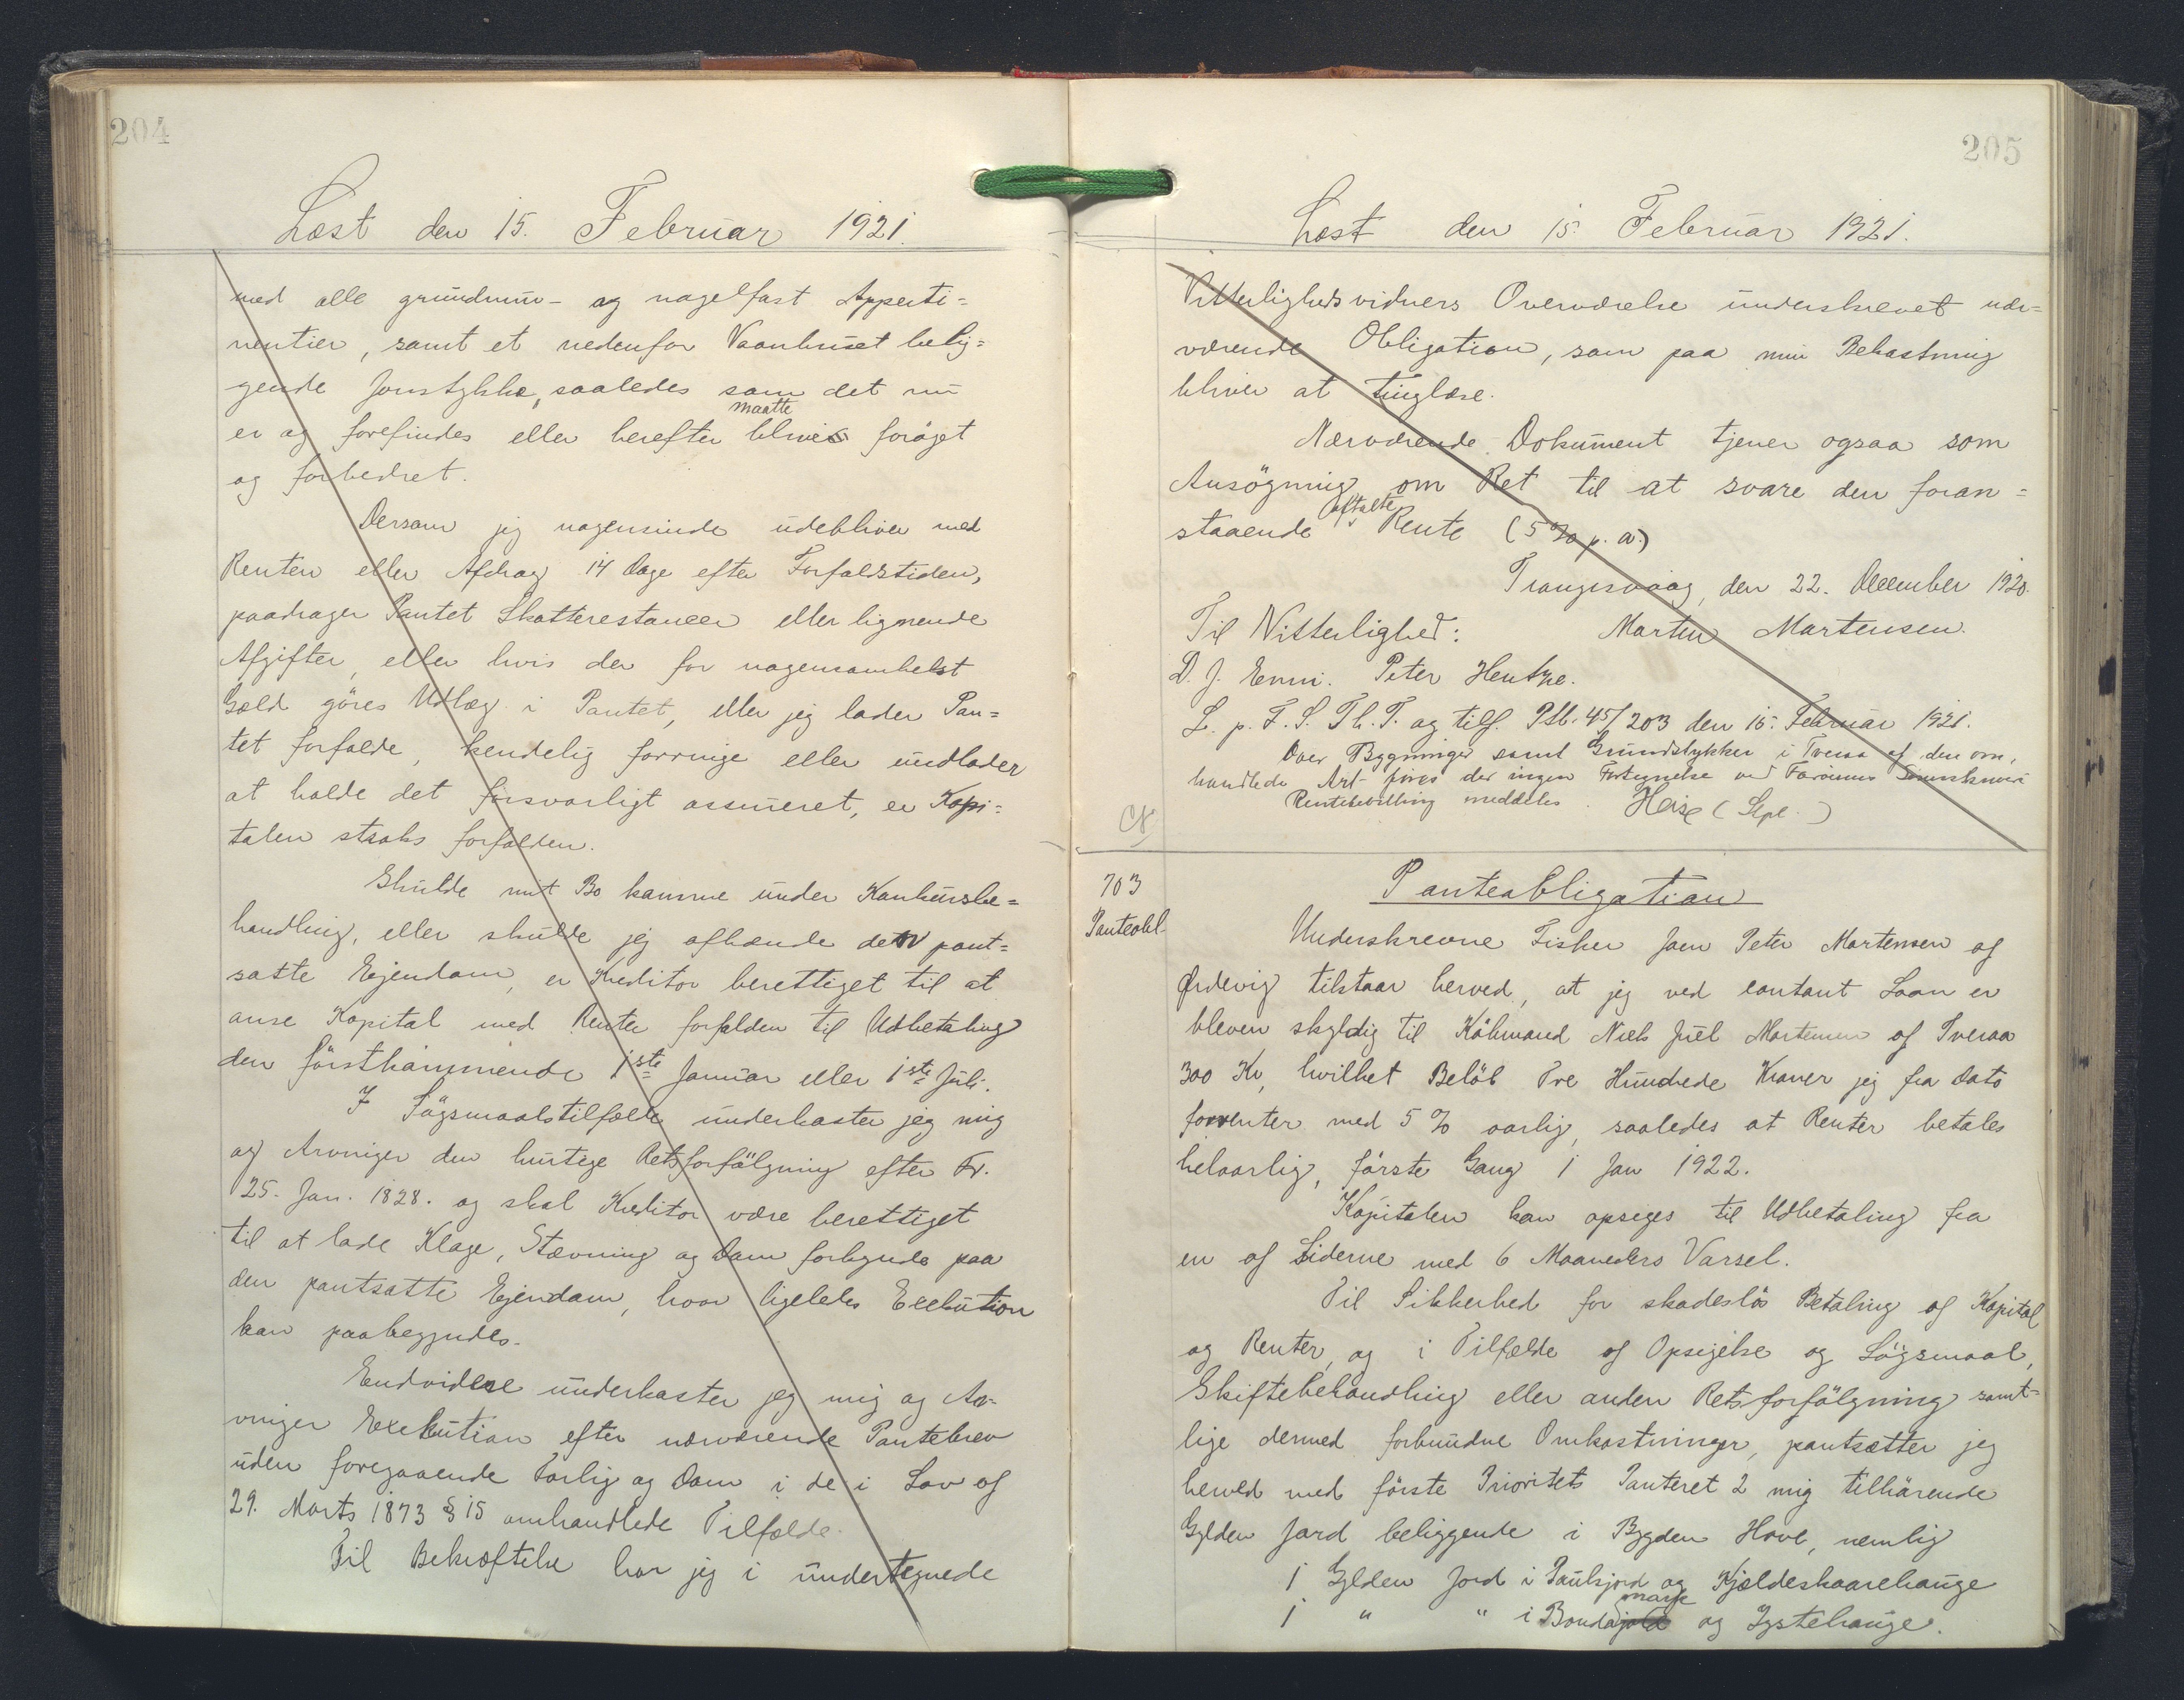 204
Læst den 15. Februar 1921.
med alle grundmur- og nagelfast Apperti=
nentier, samt et nedenfor Vaanhuset belig=
gende Jordstykke, saaledes som det nu
er og forefindes eller herefter maatte blive forøget
og forbedret.
Dersom jeg nogensinde udebliver med
Renten eller Afdrag 14 Dage efter Forfaldstiden,
paadrager Pantet Skatterestancer eller lignende
Afgifter, eller hvis der for nogensomhelst
Gæld göres Udlæg i Pantet, eller jeg lader Pan=
tet forfalde, kendelig forringe eller undlader
at holde det forsvarligt assureret, er Kapi=
talen straks forfalden.
Skulde mit Bo komme under Konkursbe=
handling, eller skulde jeg afhænde den pant=
satte Ejendom, er Kreditor berettiget til at
anse Kapital med Renter forfalden til Udbetaling
den förstkommende 1ste Januar eller 1ste Juli.
I Sögsmaalstilfælde underkaster jeg mig
og Arvinger den hurtige Retsforfölgning efter Fr.
25. Jan. 1828. og skal Kreditor være berettiget
til at lade Klage, Stævning og Dom forkynde paa
den pantsatte Ejendom, hvor ligeledes Execution
kan paabegyndes.
Endvidere underkaster jeg mig og Ar-
vinger Exekution efter nærværende Pantebrev
uden foregaaende Forlig og Dom i de i Lov af
29. Marts 1873 § 15 omhandlede Tilfælde.
Til Bekræftelse har jeg i undertegnede
205
Læst den 15. Februar 1921.
Vitterlighedsvidners Overværelse underskrevet nær=
værende Obligation, som paa min Bekostning
bliver at tinglæse.
Nærværende Dokument tjener ogsaa som
Ansögning om Ret til at svare den foran=
staaende aftalte Rente (5 % p. a.)
Trangisvaag, den 22. December 1920.
Til Vitterlighed: Morten Mortensen.
D. J. Enni. Peter Hentze.
L. p. F. S. Th. T. og tilf. Ptb. 45/203 den 15. Februar 1921.
Over Bygninger samt Grundstykker i Tveraa af den om,
handlede Art föres der ingen Fortegnelse ved Færøernes Sorenskriveri
Rentebevilling meddeles. Heise (Sspl.)
703
Panteobl.
Panteobligation
Underskrevne Fisker Joen Peter Mortensen af
Ørdevig tilstaar herved, at jeg ved contant Laan er
bleven skyldig til Köbmand Niels Juel Mortensen af Tveraa
300 Kr, hvilket Belöb Tre Hundrede Kroner jeg fra Dato
forrenter med 5 % aarlig, saaledes at Renter betales
helaarlig, förste Gang 1 Jan 1922.
Kapitalen kan opsiges til Udbetaling fra
en af Siderne med 6 Maaneders Varsel.
Til Sikkerhed for skadeslös Betaling af Kapital
og Renter, og i Tilfælde af Opsigelse og Sögsmaal,
Skiftebehandling eller anden Retsforfölgning samt=
lige dermed forbundne Omkostninger, pantsætter jeg
herved med förste Prioritets Panteret 2 mig tilhörende
Gylden Jord beliggende i Bygden Hove, nemlig
1 Gylden Jord i Paulsjord og Kjældeskaarehauge
1 " " i Bonda mark og Ystehauge.